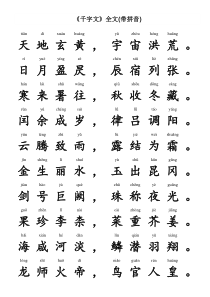 《千字文》全文(带拼音)
tiān dì xuán huáng yǔ zhòu hóng huāng
天地玄黄，宇宙洪荒。
rì yuè yíng zè chén xiù liè zhāng
日月盈昃，辰宿列张。
hán lái shǔ wǎng qiū shōu dōng cáng
寒来暑往，秋收冬藏。
rùn yú chéng suì lǜ lǚ tiáo yáng
闰余成岁，律吕调阳。
yún téng zhì yǔ lù jié wéi shuāng
云腾致雨，露结为霜。
jīn shēng lì shuǐ yù chū kūn gāng
金生丽水，玉出昆冈。
jiàn hào jù què zhū chēng yè guāng
剑号巨阙，珠称夜光。
guǒ zhēn lǐ nài cài zhòng jiè jiāng
果珍李柰，菜重芥姜。
hǎi xián hé dàn lín qián yǔ xiáng
海咸河淡，鳞潜羽翔。
lóng shī huǒ dì niǎo guān rén huáng
龙师火帝，鸟官人皇。